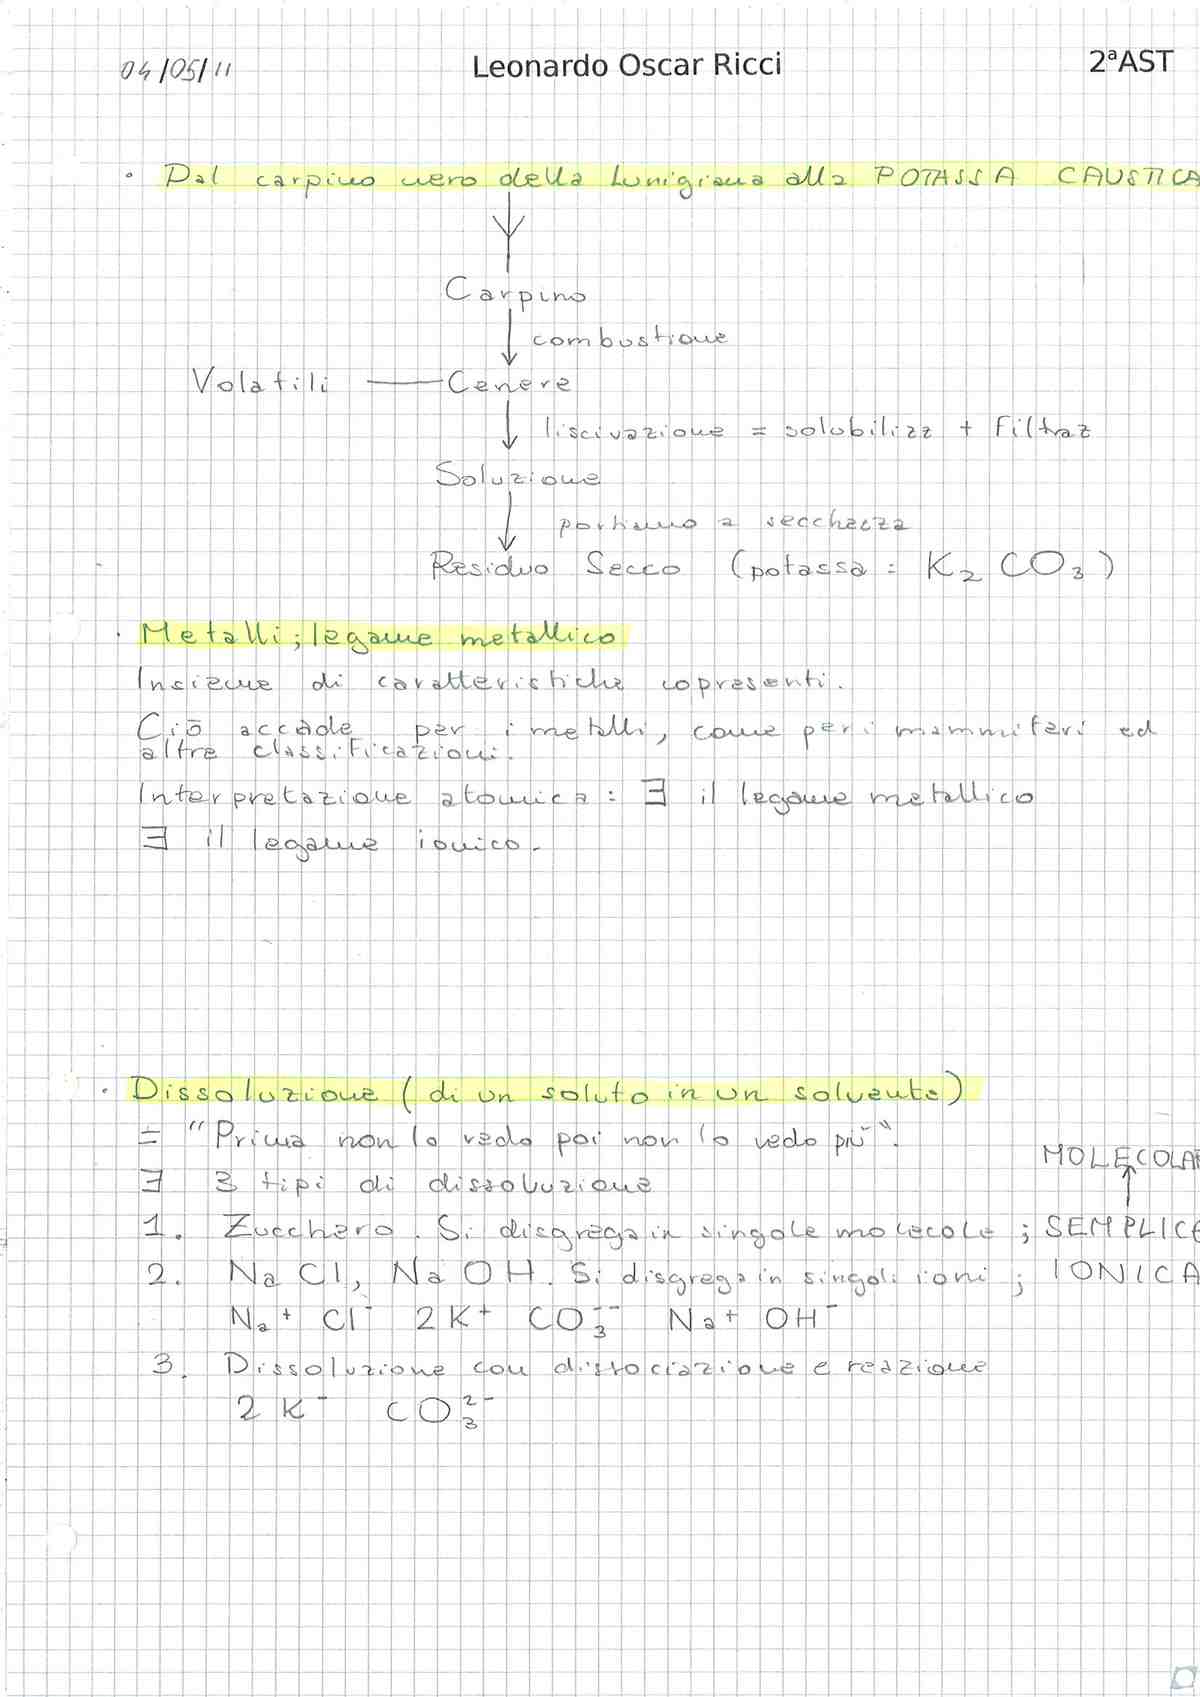 04/05/11 Leonardo Oscar Ricci 2ªAST
· Dal carpino nero della Lunigiana alla POTASSA CAUSTICA
Carpino
combustione
Volatili — Cenere
liscivazione = solubilizz + filtraz
Soluzione
portiamo a secchezza
Residuo Secco (potassa = K₂CO₃)
· Metalli; legame metallico
Insieme di caratteristiche copresenti.
Ciò accade per i metalli, come per i mammiferi ed
altre classificazioni.
Interpretazione atomica: ∃ il legame metallico
∃ il legame ionico.
· Dissoluzione (di un soluto in un solvente)
= "Prima non lo vedo poi non lo vedo più".
MOLECOLAR
∃ 3 tipi di dissoluzione
1. Zucchero. Si disgrega in singole molecole; SEMPLICE
2. NaCl, NaOH. Si disgrega in singoli ioni; IONICA
Na⁺ Cl⁻ 2K⁺ CO₃⁻⁻ Na⁺ OH⁻
3. Dissoluzione con dissociazione e reazione
2K⁻ CO₃²⁻